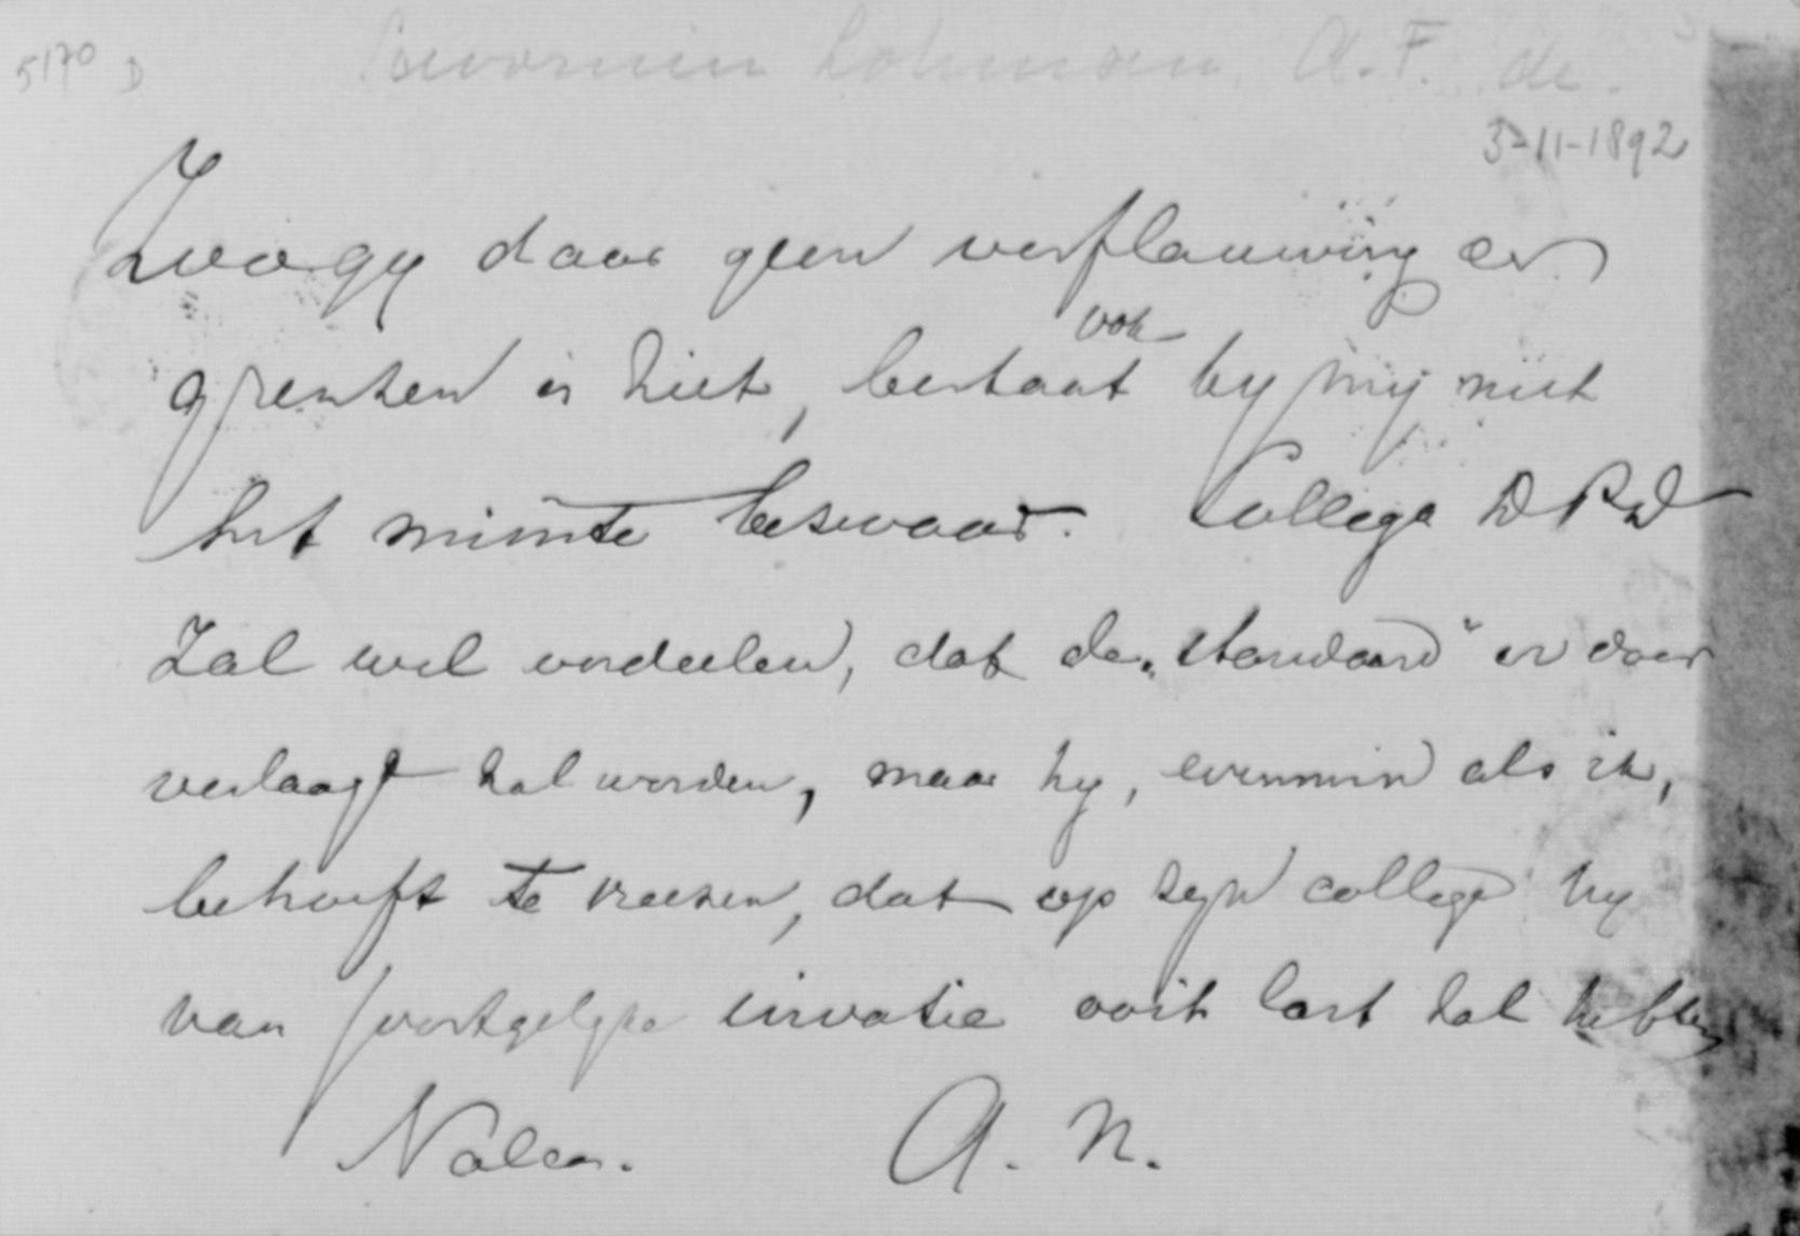 5170 D Savornin Lohman, A.F. de.
3-11-1892
Zoo gy daar geen verflauwing der
grenzen in ziet, bestaat ook by mij niet
het minste beswaar. Collega
Zal wel oordeelen, dat de „Standaard" er door
verlaagd zal worden, maar hy, evenmin als ik,
behoeft te vreezen, dat op zyn college hy
van soortgelyke invatie ooit last zal hebben
A. N.